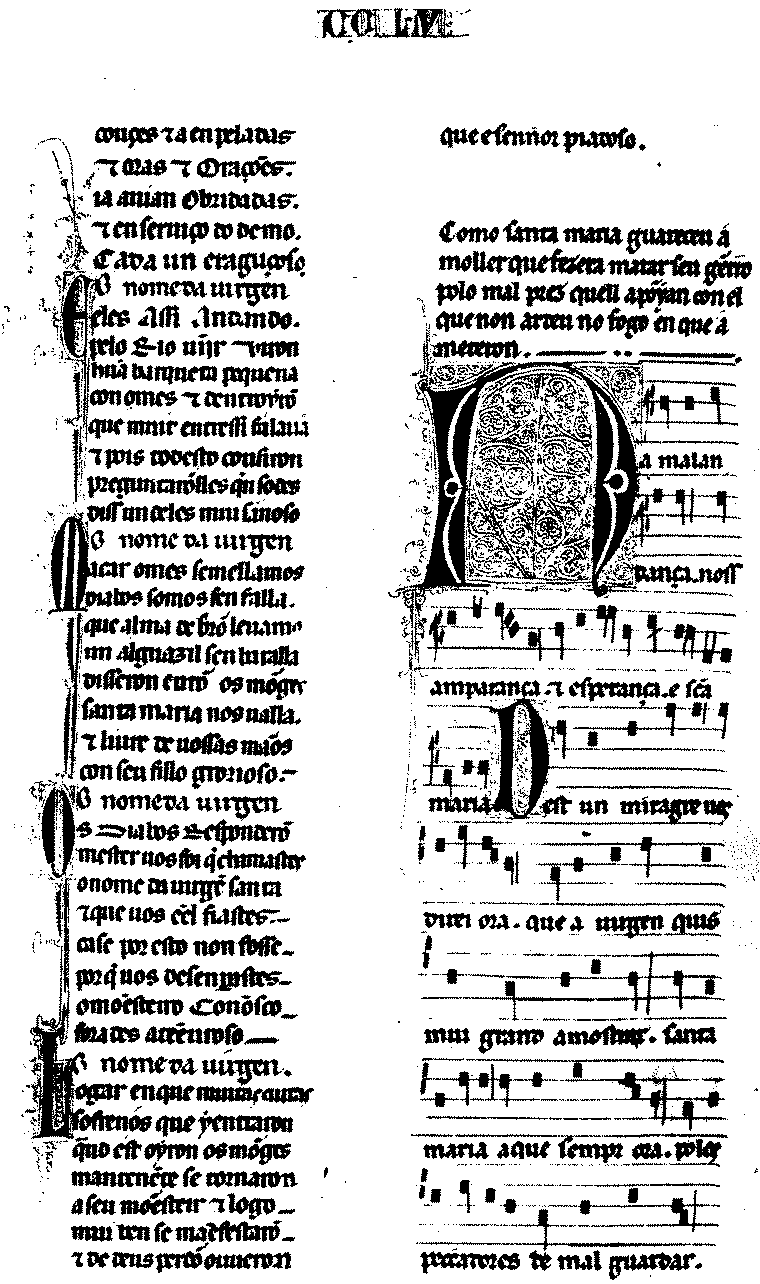 CC LV
couçes ⁊ a enpeladas
⁊ oras ⁊ Orações.
ia auian Obridadas.
⁊ en seruiço do demo.
Cada un eraguçoso
O nome da uirgen
Eles Assi Andando.
pelo Rio uijr ⁊ uiron
hũa barqueta pequena
con omes
que muir entressi falauã
⁊ pois
preguntarõlles quẽ sodes
dissunceles mui sinoso
O nome da uirgen
Macar omes semellamos
diabos somos sen falla.
que alma de leuamos
un Alguazil sen baralla
disseron entõ os mõges
santa maria nos ualla.
⁊ liure de uossas mãos
con seu fillo grorioso.
O nome da uirgen
Os Diabos Responderõ
mester uos foi q̇ chamastes
o nome da uirgẽ santa
⁊ que uos eel fiastes.
case por esto non fosse
por q̇ uos desenparastes
o moesteiro Conosco
forades
O nome da uirgen.
Logar en que muitas
sostenos que yentraron
quãd est oyron os mõges
mantenẽte se tornaron
a seu mõesteir ⁊ logo
mui ben se mãefestarõ
⁊ de deus perdõ ouueron
que e sennor piadoso.
Como santa maria guareceu á
moller que fezera matar seu gẽrro
polo mal prez quell apoyan con el
que non arceu no fogo en que a
meteron.
Na malan
dança. noss
amparança. ⁊ esperança. e sc̃a
maria Dest un miragre uos
direi ora. que a uirgen quis
mui grand amostrar. santa
maria a que sempr ora. polos
peccadores de mal guardar.